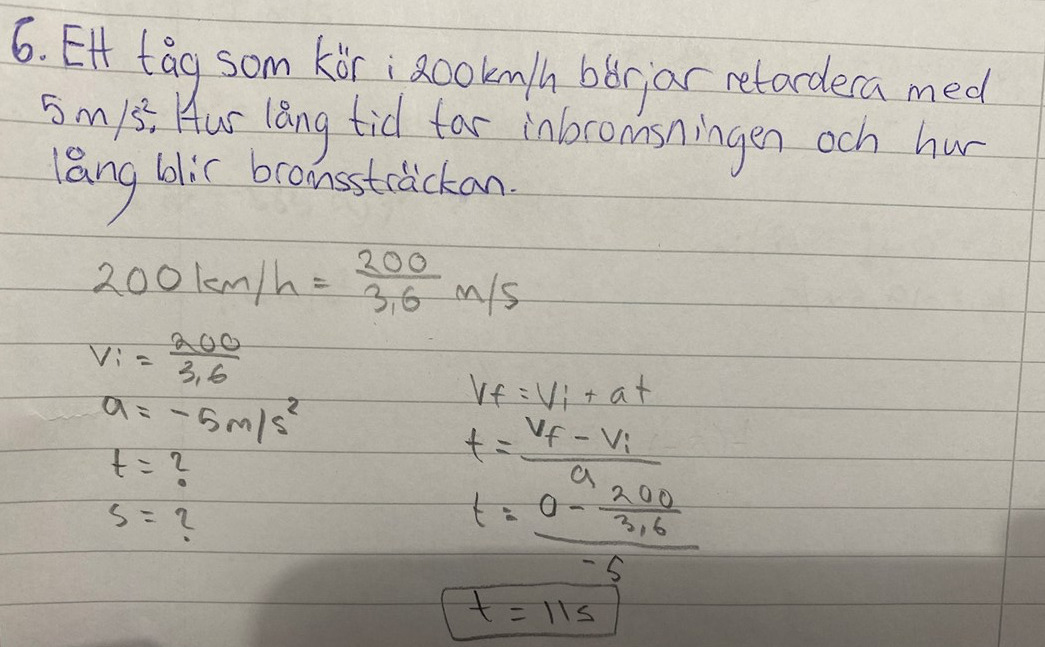 6. Ett tåg som kör i 200km/h börjar retardera med
5m/s². Hur lång tid tar inbromsningen och hur
lång blir bromssträckan.
200km/h = 200/3,6 m/s
Vi = 200/3,6
a = -5m/s²
t = ?
s = ?
Vf = Vi + at
t = (Vf - Vi)/a
t = (0 - 200/3,6)/-5
t = 11s